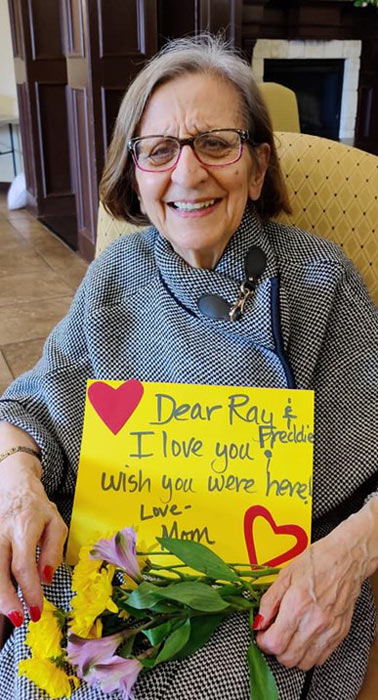 Dear Ray &
Freddie
I love you!
wish you were here!
Love-
Mom